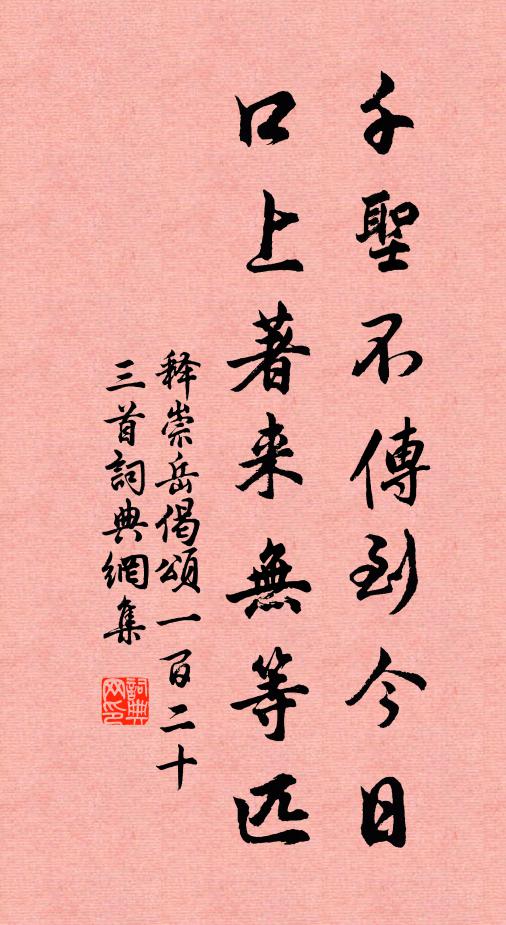 千聖不傳到今日
口上著来無等匹
释崇岳偈頌一百二十
三首詞典網集
詞典网印